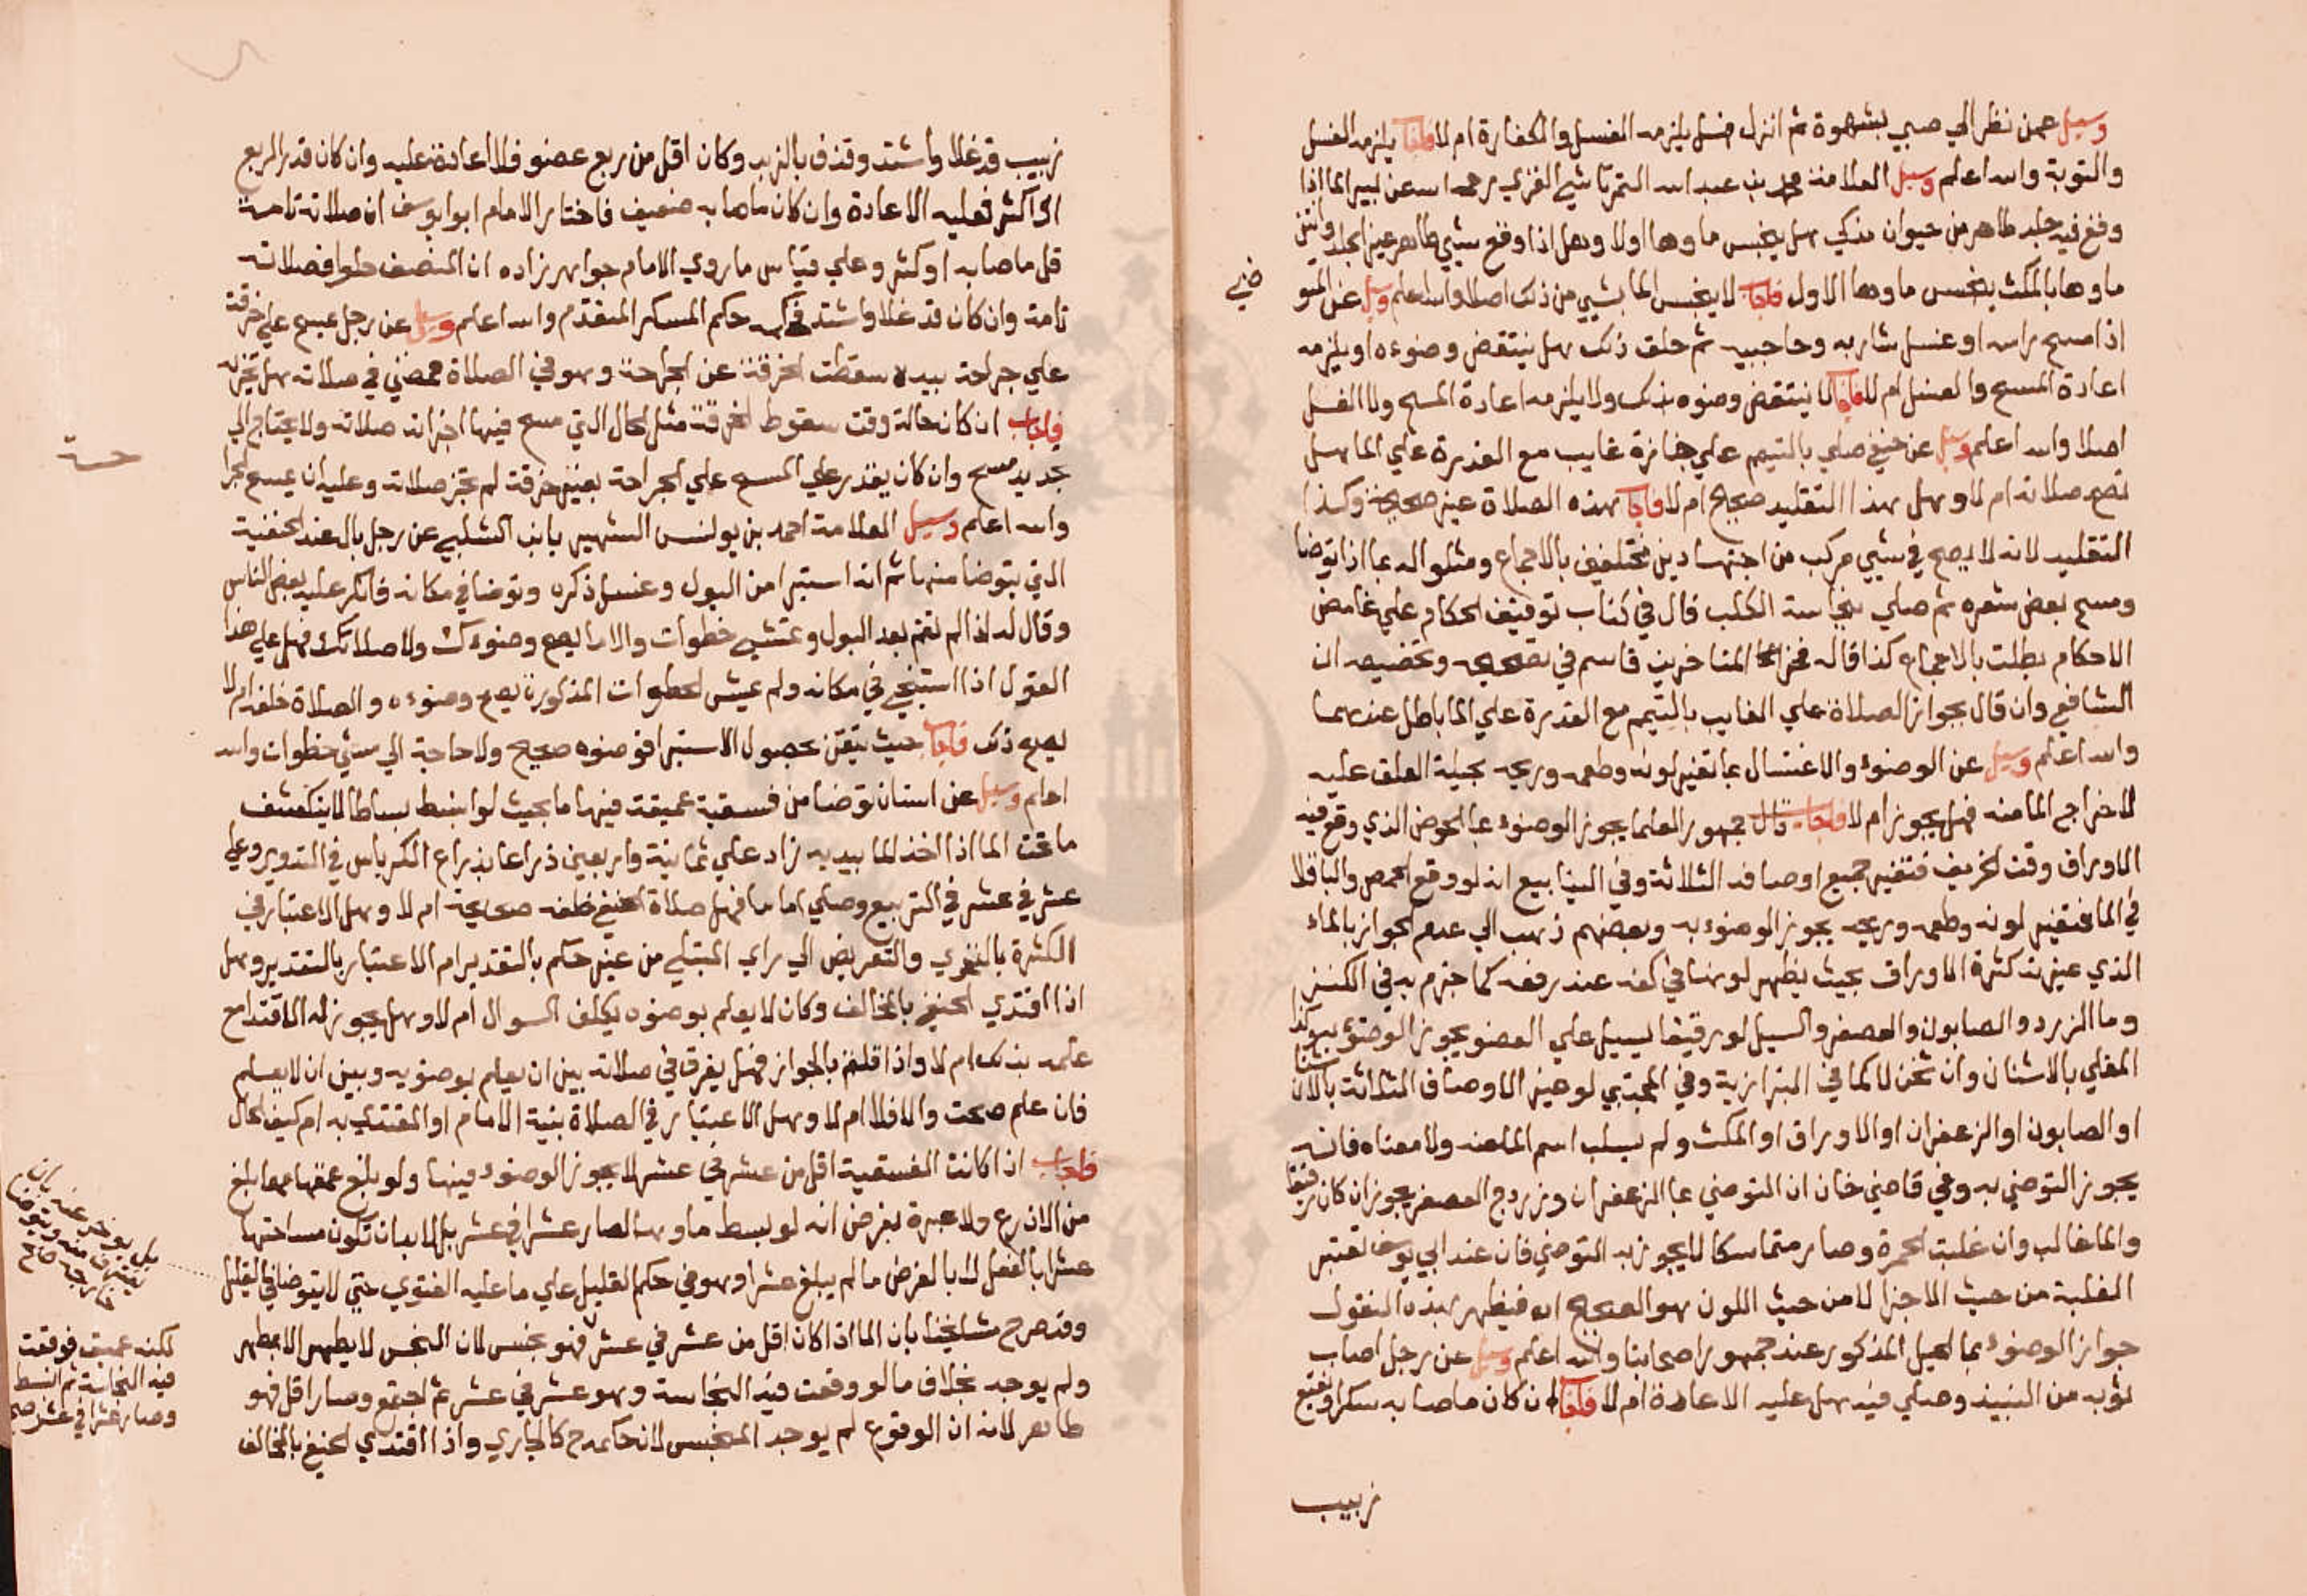 وسيل عمن نظر الي صبي بشهوة ثم انزل هل يلزمه الغسل والكفارة ام لا فاجاب يلزمه الغسل
والتوبة والله اعلم وسيل العلامة محمد بن عبد الله التمرتاشي الغزي رحمه الله عن بير الما اذا
وقع فيه جلد طاهر من حيوان مذكي هل ينجس ماوها اولا وهل اذا وقع شيي طاهر غير الجلد وانتن
ماوها بالمكث ينجس ماوها الاول فاجاب لا ينجس الما بشيي من ذلك اصلا والله اعلم وسيل عن المتو
ضي
اذا مسح راسه او غسل شاربه وحاجبيه ثم حلق ذلك هل ينتقض وضوءه او يلزمه
اعادة المسح والغسل ام لا فاجاب لا ينتقض وضوه بذلك ولا يلزمه اعادة المسح ولا الغسل
اصلا والله اعلم وسيل عن حنفي صلي بالتيمم علي جنازة غايب مع القدرة علي الما هل
تصح صلاته ام لا وهل هذا التقليد صحيح ام لا فاجاب هذه الصلاة غير صحيحة وكذا
التقليد لانه لا يصح في شيي مركب من اجتهادين مختلفين بالاجماع ومثلوا له بما اذا توضا
ومسح بعض شعره ثم صلي بنجاسة الكلب قال في كتاب توقيف الحكام علي غامض
الاحكام بطلت بالاجماع كذا قاله المتاخرين قاسم في تصحيحه وتخصيصه ان
الشافعي وان قال بجواز الصلاة علي الغايب بالتيمم مع القدرة علي الما باطل عندهما
والله اعلم وسيل عن الوضوء والاغتسال بما تغير لونه وطعمه وريحه بحيلة العلق عليه
لاخراج الما منه فهل يجوز ام لا فاجاب قال جمهور العلما يجوز الوضوء بما الحوض الذي وقع فيه
الاوراق وقت الخريف فتغير جميع اوصافه الثلاثة وفي الينابيع انه لو وقع الحمص والباقلا
في الما فتغير لونه وطعمه وريحه يجوز الوضوء به وبعضهم ذهب الي عدم الجواز بالماء
الذي غيرته كثرة الاوراق بحيث يظهر لونها في كفه عند رفعه كما جزم به في الكنز
وما الزردد والصابون والعصفر والسيل لو رقيقا يسيل علي العضو يجوز الوضوء به وكذا
المغلي بالاشنان وان ثخن لا كما في البزازية وفي المجتبي لو غير الاوصاف الثلاثة بالاشنان
او الصابون او الزعفران او الاوراق او المكث ولم يسلب اسم الما عنه ولا معناه فانه
يجوز التوضي به وفي قاضي خان ان التوضي بما الزعفران وزردج العصفر يجوز ان كان رقيقا
والما غالب وان غلبت الحمرة وصار متماسكا لا يجوز به التوضي فان عند ابي يوسف تعتبر
الغلبة من حيث الاجزا لا من حيث اللون هو الصحيح اه فيظهر بهذه النقول
جواز الوضوء بما الحيل المذكور عند جمهور اصحابنا والله اعلم وسيل عن رجل اصاب
ثوبه من النبيذ وصلي فيه هل عليه الاعادة ام لا فاجاب ان كان ما صابه سكرا او نقيع
زبيب
زبيب قد غلا واشتد وقذف بالزبد وكان اقل من ربع عضو فلا اعادة عليه وان كان قدر الربع
او اكثر فعليه الاعادة وان كان ما صابه ضعيف فاختار الامام ابو يوسف ان صلاته تامة
قل ما صابه او كثر وعلي قياس ما روي الامام جواهر زاده ان المنصف حلو فصلاته
تامة وان كان قد غلا واشتد فحكمه حكم المسكر المتقدم والله اعلم وسيل عن رجل مسح علي خرقة
علي جراحة بيده سقطت الخرقة عن الجراحة وهو في الصلاة فمضي في صلاته هل تجزيه
فاجاب ان كان حاله وقت سقوط الخرقة مثل الحال الذي مسح فيها اجزاته صلاته ولا يحتاج الي
تجديد مسح وان كان يقدر علي المسح علي الجراحة بغير خرقة لم تجز صلاته وعليه ان يمسح الجرا
حة
والله اعلم وسيل العلامة احمد بن يونس الشهير بابن الشلبي عن رجل بال عند الحنفية
الذي يتوضا منها ثم انه استبرا من البول وغسل ذكره وتوضا في مكانه فانكر عليه بعض الناس
وقال له اذا لم تقم بعد البول وتمشي خطوات والا ما يصح وضوءك ولا صلاتك فهل علي هذا
القول اذا استنجي في مكانه ولم يمشي الخطوات المذكورة يصح وضوءه والصلاة خلفه ام لا
يصح ذلك فاجاب حيث تيقن بحصول الاستبرا فوضوه صحيح ولا حاجة الي مشي خطوات والله
اعلم وسيل عن انسان توضا من فسقية عميقة فيها ما بحيث لو انبسط بساطا لا ينكشف
ما تحت الما اذا اخذ الما بيديه زاد علي ثمانية واربعين ذراعا بذراع الكرباس في التدوير وعلي
عشر في عشر في التربيع وصلي اماما فهل صلاة الحنفي خلفه صحيحة ام لا وهل الاعتبار في
الكثرة بالتحري والتعريض الي راي المبتلي من غير حكم بالتقدير ام الاعتبار بالتقدير وهل
اذا اقتدي الحنفي بالمخالف وكان لا يعلم بوضوه يكلف السوال ام لا وهل يجوز له الاقتداح
علمه بذلك ام لا واذا قلتم بالجواز فهل يفرق في صلاته بين ان يعلم بوضويه وبين ان لا يعلم
فان علم صحت والا فلا ام لا وهل الاعتبار في الصلاة بنية الامام او المقتدي به ام كيف الحال
فاجاب اذا كانت الفسقية اقل من عشر في عشر لا يجوز الوضوء فيها ولو بلغ عمقها مهما بلغ
من الاذرع ولا عبرة بفرض انه لو بسط ماوها لصار عشرا في عشر بل لا بد ان تكون مساحتها
عشرا بالفعل لا بالفرض ما لم يبلغ عشرا وهو في حكم القليل علي ما عليه الفتوي حتي لا يتوضا في القليل
بل يوخذ عنه بان
يغترف منه ويتوضا
خارجه صح
وقد صرح مشايخنا بان الما اذا كان اقل من عشر في عشر فهو نجس لان النجس لا يطهر الا بمطهر
لكنه عميق فوقعت
فيه النجاسة ثم انبسط
وصار عشرا في عشر صح
ولم يوجد بخلاف ما لو وقعت فيه النجاسة وهو عشر في عشر ثم اجتمع وصار اقل فهو
طاهر لانه ان الوقوع لم يوجد المنجس لان حكمه ح كالجاري واذا اقتدي الحنفي بالمخالف